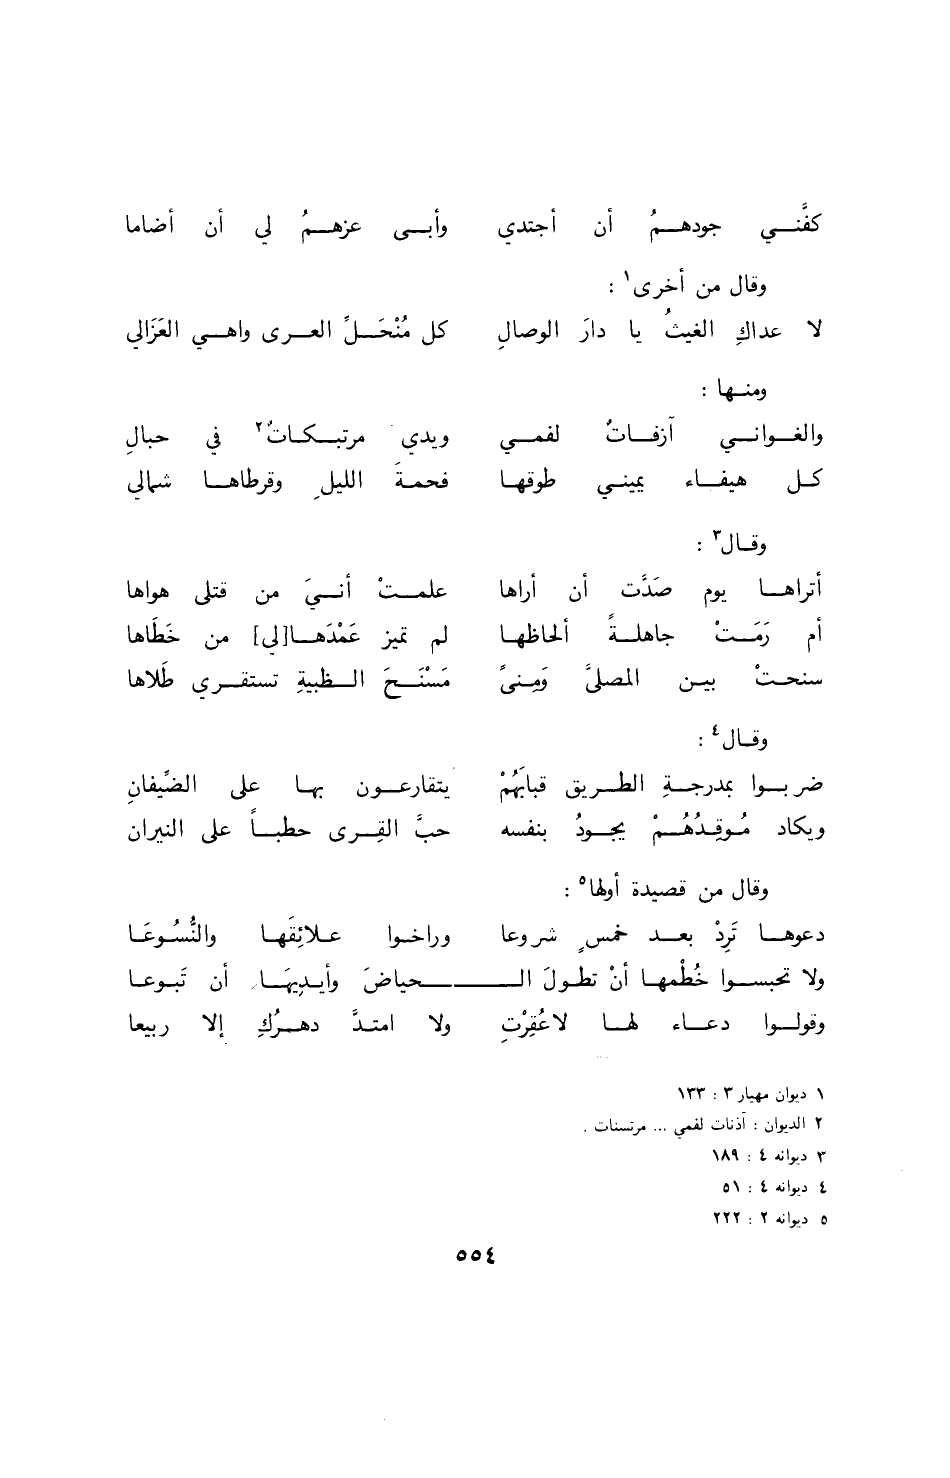 كفَّني جودهمُ أن أجتدي وأبى عزهمُ لي أن أضاما
وقال من أخرى١ :
لا عداكِ الغيثُ يا دارَ الوصالِ كل مُنْحَلِّ العرى واهي العَزَالي
ومنها :
والغواني آزفاتُ لفمي ويدي مرتبكاتُ٢ في حبالِ
كل هيفاء يميني طوقها فحمةَ الليلِ وقرطاها شمالي
وقال٣ :
أتراها يوم صَدَّت أن أراها علمتْ أنيَ من قتلى هواها
أم رَمَتْ جاهلةً ألحاظها لم تميز عَمْدَها[لي] من خَطَاها
سنحتْ بين المصلَّى وَمِنىً مَسْنَحَ الظبيةِ تستقري طَلاها
وقال٤ :
ضربوا بمدرجةِ الطريق قبابَهُمْ يتقارعون بها على الضِّيفانِ
ويكاد مُوقِدُهُمْ يجودُ بنفسه حبَّ القِرى حطباً على النيران
وقال من قصيدة أولها٥ :
دعوها تَرِدْ بعد خمسٍ شروعا وراخوا علائِقَها والنُّسُوعَا
ولا تحبسوا خُطْمها أنْ تطولَ الـحياضَ وأيديَها أن تَبوعا
وقولوا دعاء لها لاعُقِرْتِ ولا امتدَّ دهرُكِ إلا ربيعا
١ ديوان مهيار ٣ : ١٣٣
٢ الديوان : آذنات لفمي ... مرتسنات .
٣ ديوانه ٤ : ١٨٩
٤ ديوانه ٤ : ٥١
٥ ديوانه ٢ : ٢٢٢
٥٥٤